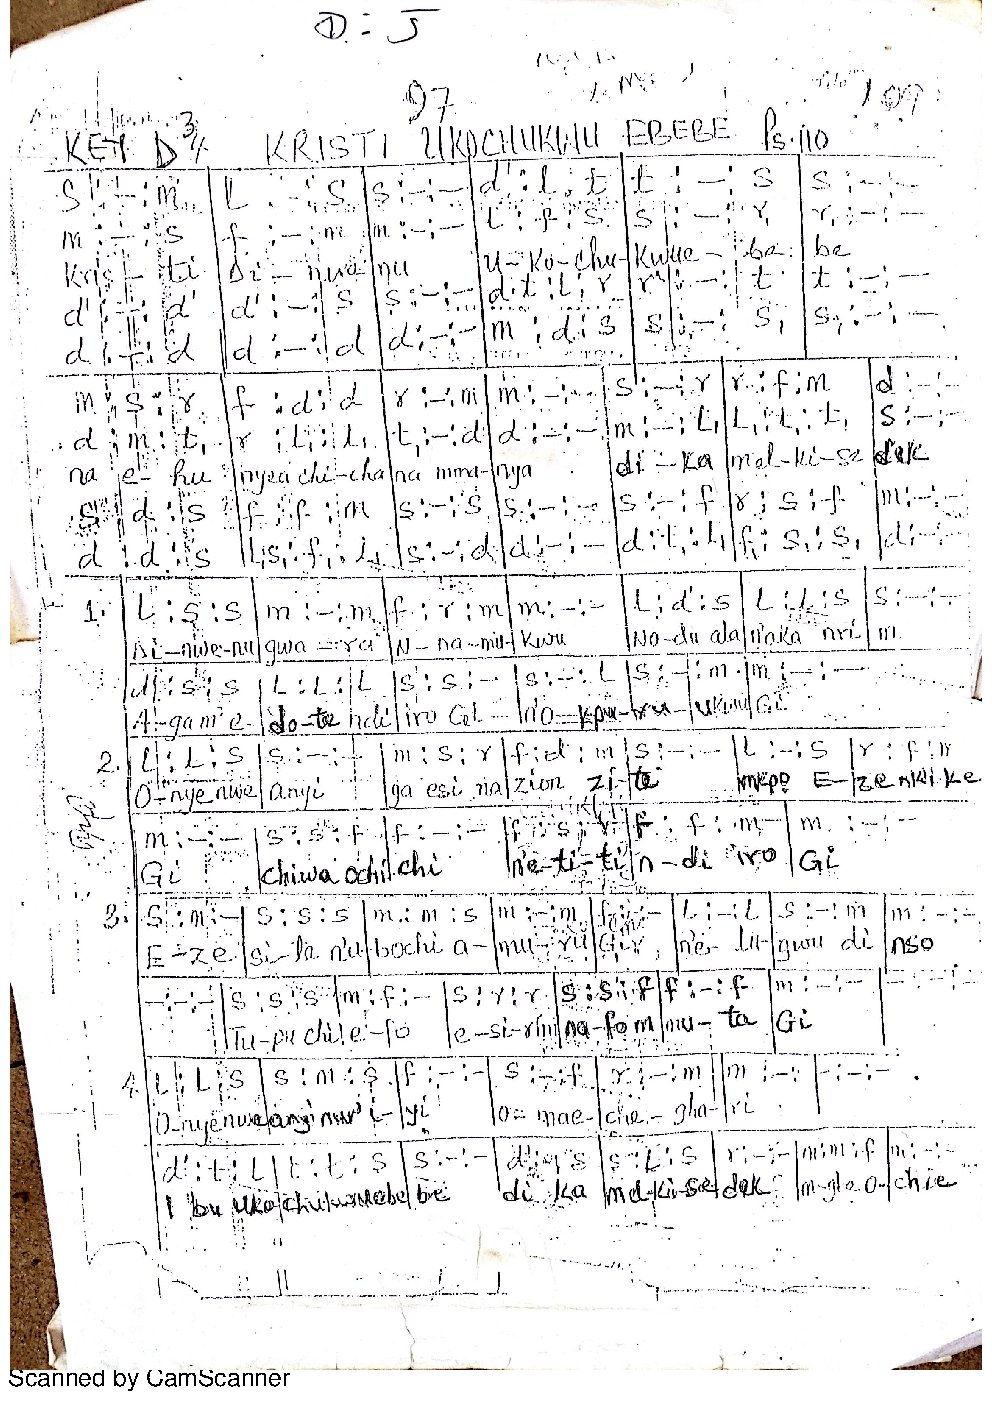 D : J
97
109
KEY D 3/4 KRISTI UKOCHUKWU EBEBE Ps. 110
S : - : m | L : - : S | s : - : - | d' : l : t | t : - : s | s : - : -
m : - : s | f : - : m | m : - : - | l : f : s | s : - : r, | r, : - : -
Kris - ti Di - nwe nu U - ko - chu - kwue - be - be
d' : - : d' | d' : - : s | s : - : - | d : t : l : r | r : - : t | t : - : -
d : - : d | d : - : d | d : - : - | m : d : s | s : - : s, | s, : - : -
m : s : r | f : d : d | r : - : m | m : - : - | s : - : r | r : f : m | d : - : -
d : m : t, | r : l, : l, | t, : - : d | d : - : - | m : - : l, | l, : t, : t, | s : - : -
na e - hu nyea chi - cha na mma - nya di - ka mel - ki - se dek
s : d : s | f : f : m | s : - : s | s : - : - | s : - : f | r : s : f | m : - : -
d : d : s | l, s, : f, : l, | s : - : d | d : - : - | d : t, : l, | f, : s, : s, | d : - : -
1. L : s : s | m : - : m | f : r : m | m : - : - | L : d' : s | L : L : s | s : - : -
Di - nwe - nu gwa - ra N - na - mu - kwu No - du ala n'aka nri m
d' : s : s | L : L : L | s : s : - | s : - : L | s : - : m | m : - : -
A - gam e - do - te ndi iro Gi - n'o - kpu - ru - ukwu Gi
2. L : L : s | s : - : - | m : s : r | f : d : m | s : - : - | L : - : s | r : f : m
O - nyenwe anyi ga esi na zion zi - te mkpo E - ze nke ike
m : - : - | s : s : f | f : - : - | f : s : r | f : f : m | m : - : -
Gi chiwa ochichi n'e - ti - ti n - di iro Gi
3. s : m : - | s : s : s | m : m : s | m : - : m | L : - : L | s : - : m | m : - : -
E - ze si - la n'u bochi a - mu - ru Gi n'e - lu - gwu di nso
- : - : - | s : s : s | m : f : - | s : r : r | s : s : f | f : - : f | m : - : - | - : - : -
Tu - pu chi e - fo e - si - rim na - fo m mu - ta Gi
4. L : L : s | s : m : s | f : - : - | s : - : f | r : - : m | m : - : - | - : - : -
O - nyenwe anyi nur' i - yi O - mae - che - gha - ri
d' : t : L | t : t : s | s : - : - | s : L : s | r : - : - | m : m : f | m : - : -
I bu uko chukwu ebe be di ka mel - ki - se dek m - gba o - chie
Scanned by CamScanner